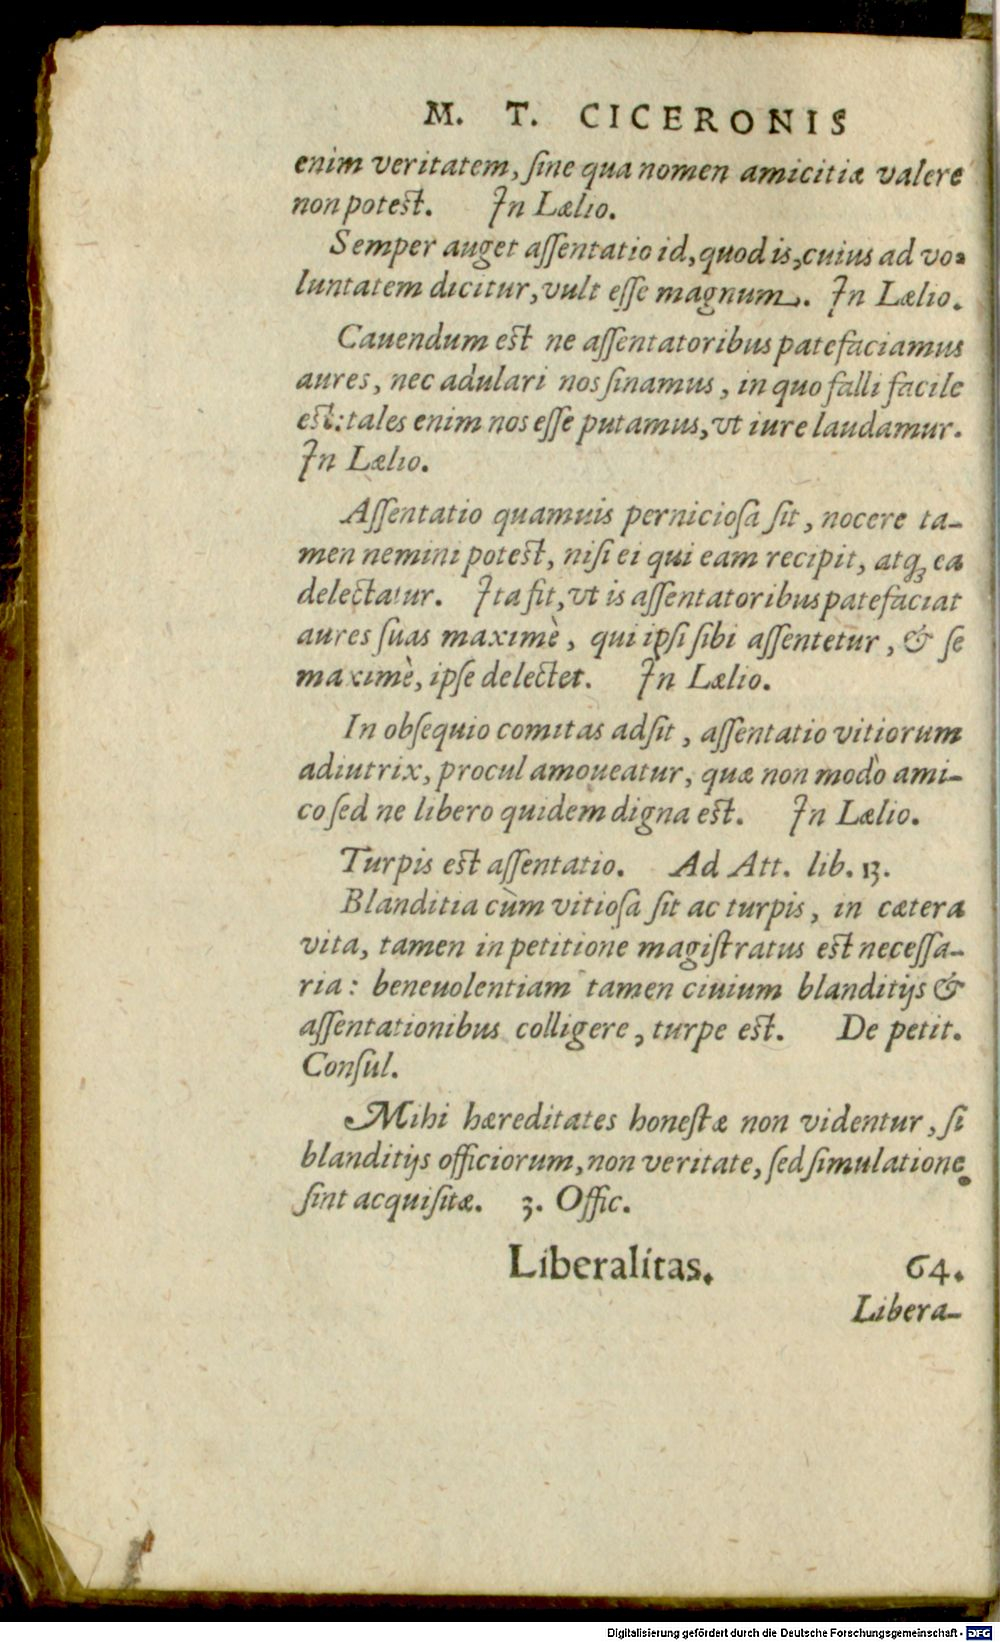 M. T. CICERONIS
enim veritatem, ſine qua nomen amicitiæ valere
non poteſt. In Lælio.
Semper auget aſſentatio id, quod is, cuius ad vo-
luntatem dicitur, vult eſſe magnum. In Lælio.
Cauendum eſt ne aſſentatoribus patefaciamus
aures, nec adulari nos ſinamus, in quo falli facile
eſt: tales enim nos eſſe putamus, vt iure laudamur.
In Lælio.
Aſſentatio quamuis pernicioſa ſit, nocere ta-
men nemini poteſt, niſi ei qui eam recipit, atq; ea
delectatur. Ita fit, vt is aſſentatoribus patefaciat
aures ſuas maximè, qui ipſi ſibi aſſentetur, & ſe
maximè, ipſe delectet. In Lælio.
In obſequio comitas adſit, aſſentatio vitiorum
adiutrix, procul amoueatur, quæ non modò ami-
co ſed ne libero quidem digna eſt. In Lælio.
Turpis eſt aſſentatio. Ad Att. lib. 13.
Blanditia cùm vitioſa ſit ac turpis, in cætera
vita, tamen in petitione magiſtratus eſt neceſſa-
ria: beneuolentiam tamen ciuium blanditijs &
aſſentationibus colligere, turpe eſt. De petit.
Conſul.
Mihi hæreditates honeſtæ non videntur, ſi
blanditijs officiorum, non veritate, ſed ſimulatione
ſint acquiſitæ. 3. Offic.
Liberalitas. 64.
Libera-
Digitalisierung gefördert durch die Deutsche Forschungsgemeinschaft - DFG